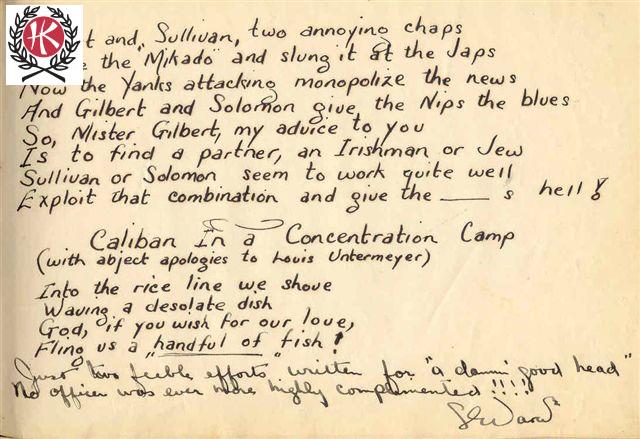 HK
t and Sullivan, two annoying chaps
e the "Mikado" and slung it at the Japs
Now the Yanks attacking monopolize the news
And Gilbert and Solomon give the Nips the blues
So, Mister Gilbert, my advice to you
Is to find a partner, an Irishman or Jew
Sullivan or Solomon seem to work quite well
Exploit that combination and give the ____ s hell!
Caliban In a Concentration Camp
(with abject apologies to Louis Untermeyer)
Into the rice line we shove
Waving a desolate dish
God, if you wish for our love,
Fling us a "handful of" fish!
Just two feeble efforts written for "a damn good head"
No officer was ever more highly complimented!!!!